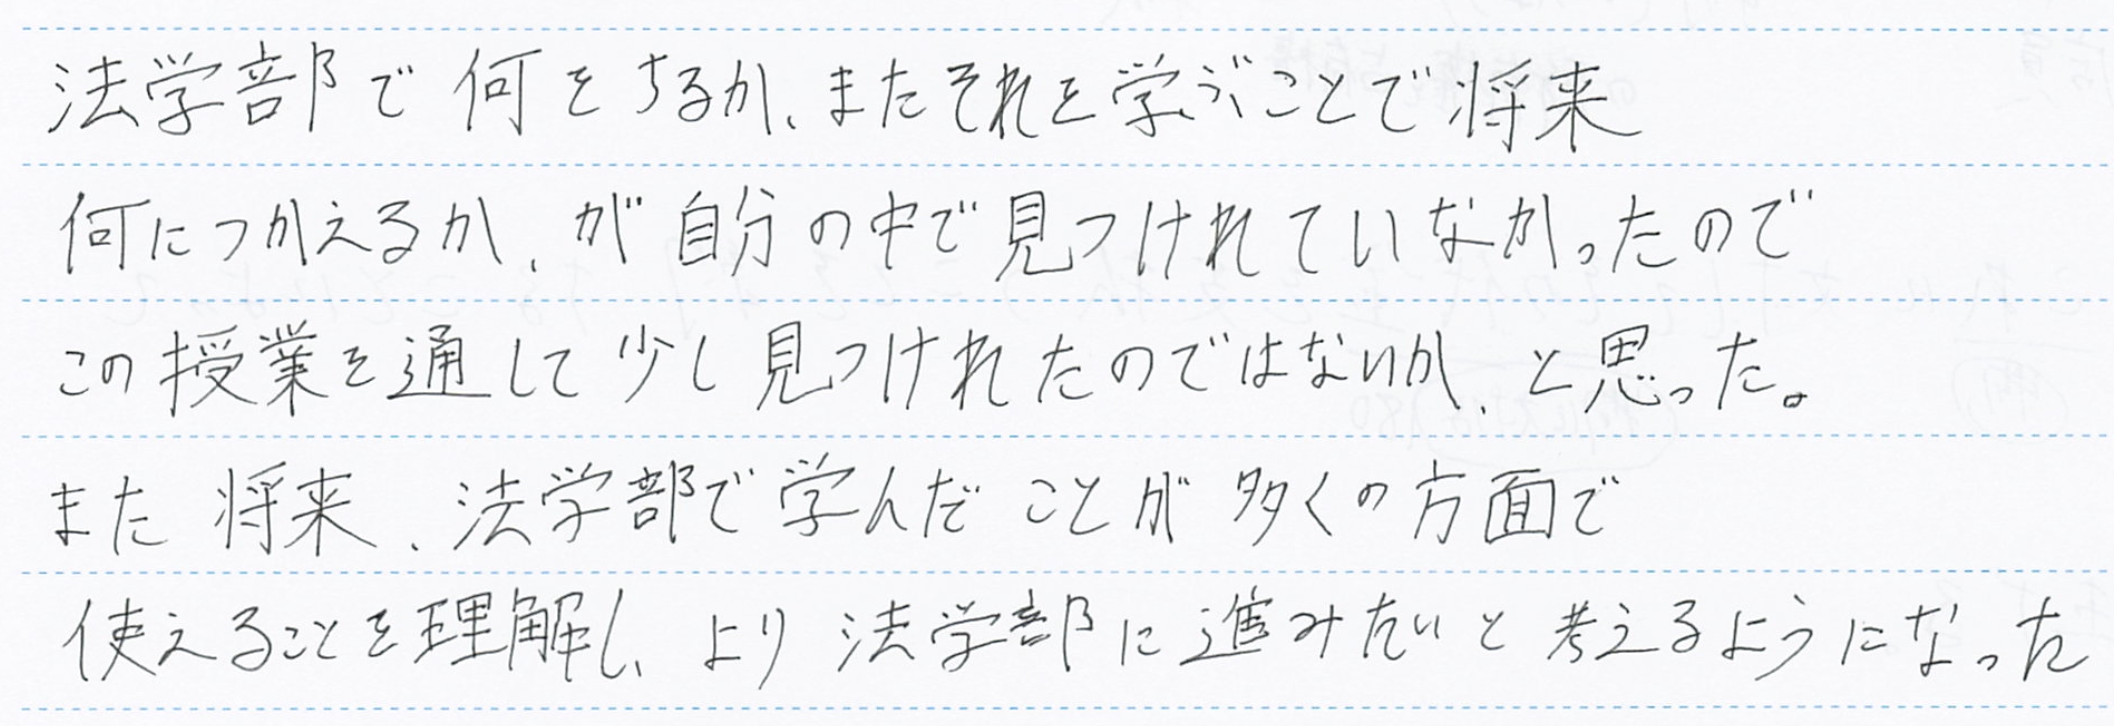 法学部で何をするか、またそれを学ぶことで将来
何につかえるか、が自分の中で見つけれていなかったので
この授業を通して少し見つけれたのではないか、と思った。
また将来、法学部で学んだことが多くの方面で
使えることを理解し、より法学部に進みたいと考えるようになった